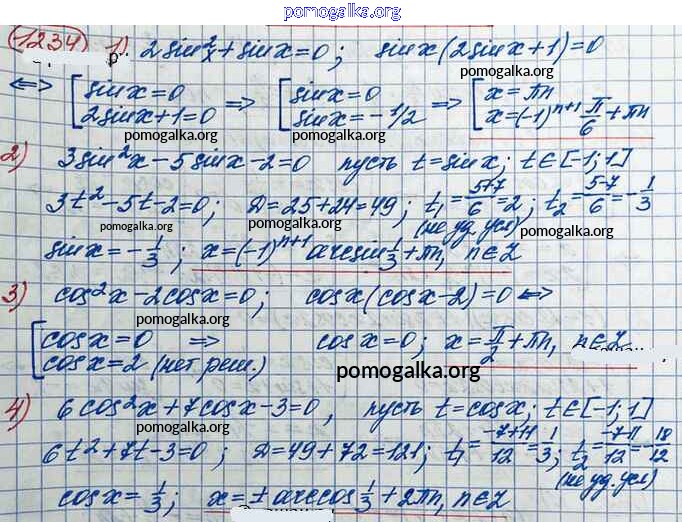 pomogalka.org
1234 1) 2sin²x + sinx = 0; sinx(2sinx+1)=0
pomogalka.org
⟺ [ sinx=0 ⇒ [ sinx=0 ⇒ [ x=πn
2sinx+1=0 sinx=-1/2 x=(-1)ⁿ⁺¹ π/6 + πn
pomogalka.org pomogalka.org
2) 3sin²x-5sinx-2=0 пусть t=sinx; t∈[-1;1]
3t²-5t-2=0; D=25+24=49; t₁=(5+7)/6=2; t₂=(5-7)/6=-1/3
(не уд. усл)
pomogalka.org pomogalka.org pomogalka.org
sinx=-1/3; x=(-1)ⁿ⁺¹ arcsin 1/3 + πn, n∈Z
3) cos²x-2cosx=0; cosx(cosx-2)=0 ⟺
pomogalka.org
[ cosx=0 ⇒ cosx=0; x=π/2+πn, n∈Z
cosx=2 (нет реш.)
pomogalka.org pomogalka.org
4) 6cos²x+7cosx-3=0, пусть t=cosx; t∈[-1;1]
pomogalka.org
6t²+7t-3=0; D=49+72=121; t₁=(-7+11)/12=1/3; t₂=(-7-11)/12=-18/12
(не уд. усл)
cosx=1/3; x=±arccos 1/3+2πn, n∈Z